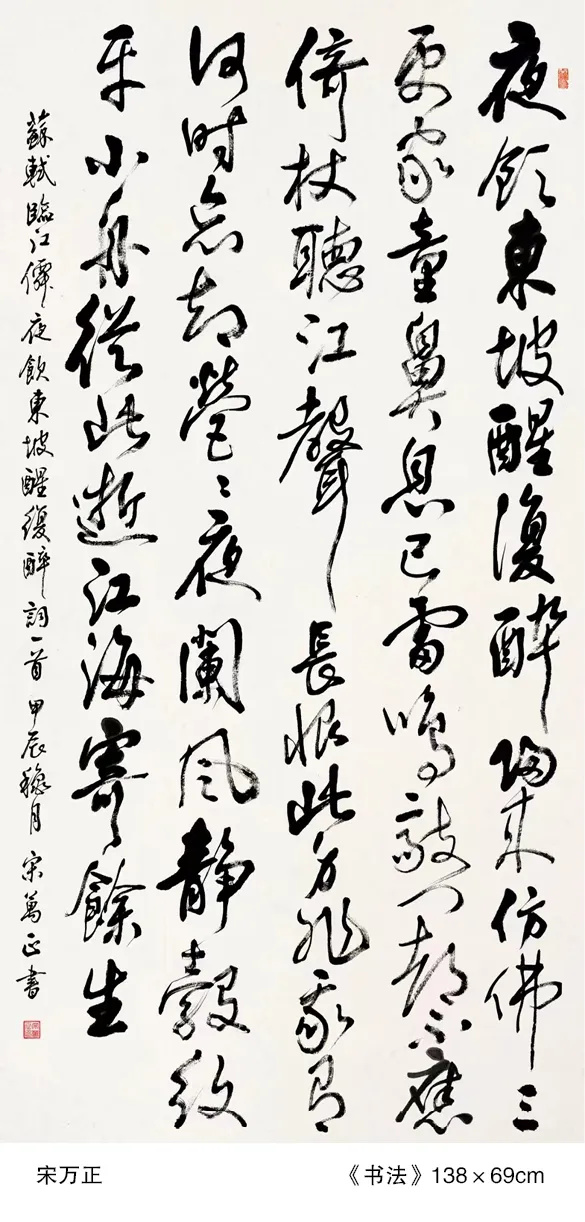 夜飲東坡醒復醉归来仿佛三
更家童鼻息已雷鳴敲门都不應
倚杖聽江聲長恨此身非我有
何时忘却營〻夜闌风静縠紋
平小舟從此逝江海寄餘生
蘇軾臨江僊夜飲東坡醒復醉詞一首 甲辰穐月 宋萬正書
宋万正
《书法》138×69cm